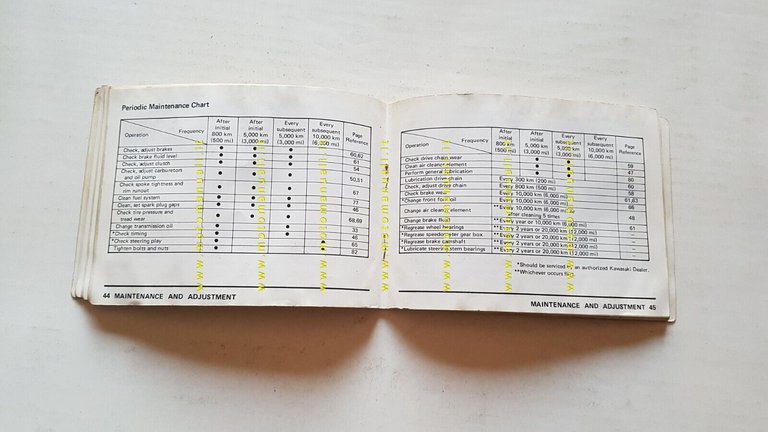 Periodic Maintenance Chart
Operation Frequency After initial 800 km (500 mi) After initial 5,000 km (3,000 mi) Every subsequent 5,000 km (3,000 mi) Every subsequent 10,000 km (6,000 mi) Page Reference
Check, adjust brakes ● ● ●
Check brake fluid level ● ● ● 60,62
Check, adjust clutch ● ● ● 61
Check, adjust carburetors and oil pump ● ● ● 54
50,51
Check spoke tightness and rim runout ● ● ● 67
Clean fuel system ● ● ●
Clean, set spark plug gaps ● ● ●
Check tire pressure and tread wear ● ● ● 68,69
Change transmission oil ● ● ● 33
*Check timing ● ● ●
*Check steering play ● ● 65
Tighten bolts and nuts ● ● 82
44 MAINTENANCE AND ADJUSTMENT
Operation Frequency After initial 800 km (500 mi) After initial 5,000 km (3,000 mi) Every subsequent 5,000 km (3,000 mi) Every subsequent 10,000 km (6,000 mi) Page Reference
Check drive chain wear ● ●
Clean air cleaner element ● ●
Perform general lubrication ● ● 47
Lubrication drive chain Every 300 km (200 mi) 80
Check, adjust drive chain Every 800 km (500 mi)
Check brake wear Every 5,000 km
*Change front fork oil Every 10,000 km (6,000 mi)
Change air cleaner element **Every 10,000 km (6,000 mi) or after cleaning 5 times
Change brake fluid **Every year or 10,000 km (6,000 mi) 61
*Regrease wheel bearings **Every 2 years or 20,000 km (12,000 mi) –
*Regrease speedometer gear box **Every 2 years or 20,000 km (12,000 mi) –
*Regrease brake camshaft **Every 2 years or 20,000 km (12,000 mi) –
*Lubricate steering stem bearings **Every 2 years or 20,000 km (12,000 mi) –
*Should be serviced by an authorized Kawasaki Dealer.
**Whichever occurs first
MAINTENANCE AND ADJUSTMENT 45